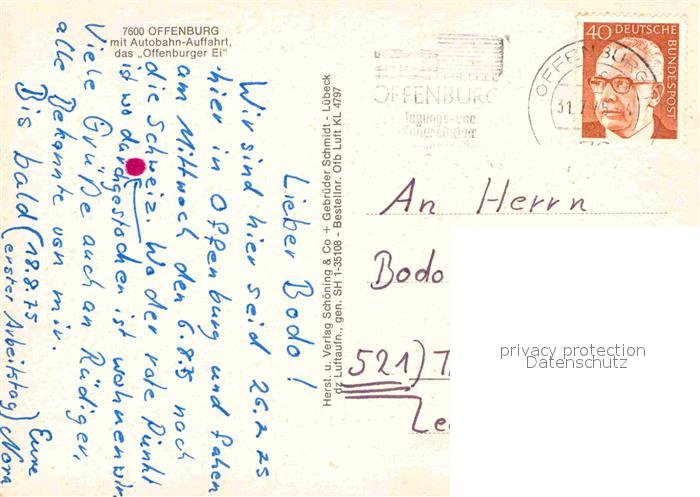 7600 OFFENBURG
mit Autobahn-Auffahrt,
das „Offenburger Ei"
Lieber Bodo!
Wir sind hier seid 26.7.75
hier in Offenburg und fahen
am Mittwoch den 6.8.75 nach
die Schweiz. Wo der rote Punkt
ist wo durchgestochen ist wohnen wir
Viele Grüße auch an Rüdiger,
alle Bekannte von mir.
Bis bald (18.8.75
erster Arbeitstag)
Eure
Nora
Herst. u. Verlag Schöning & Co + Gebrüder Schmidt - Lübeck
dz Luftaufn., gen. SH 1-35108 - Bestellnr. Ofb Luft KL 4797
OFFENBURG
Tagungs- und
Kongreßstadt
OFFENBURG
31.7.
40
DEUTSCHE BUNDESPOST
An Herrn
Bodo
521) T
privacy protection
Datenschutz